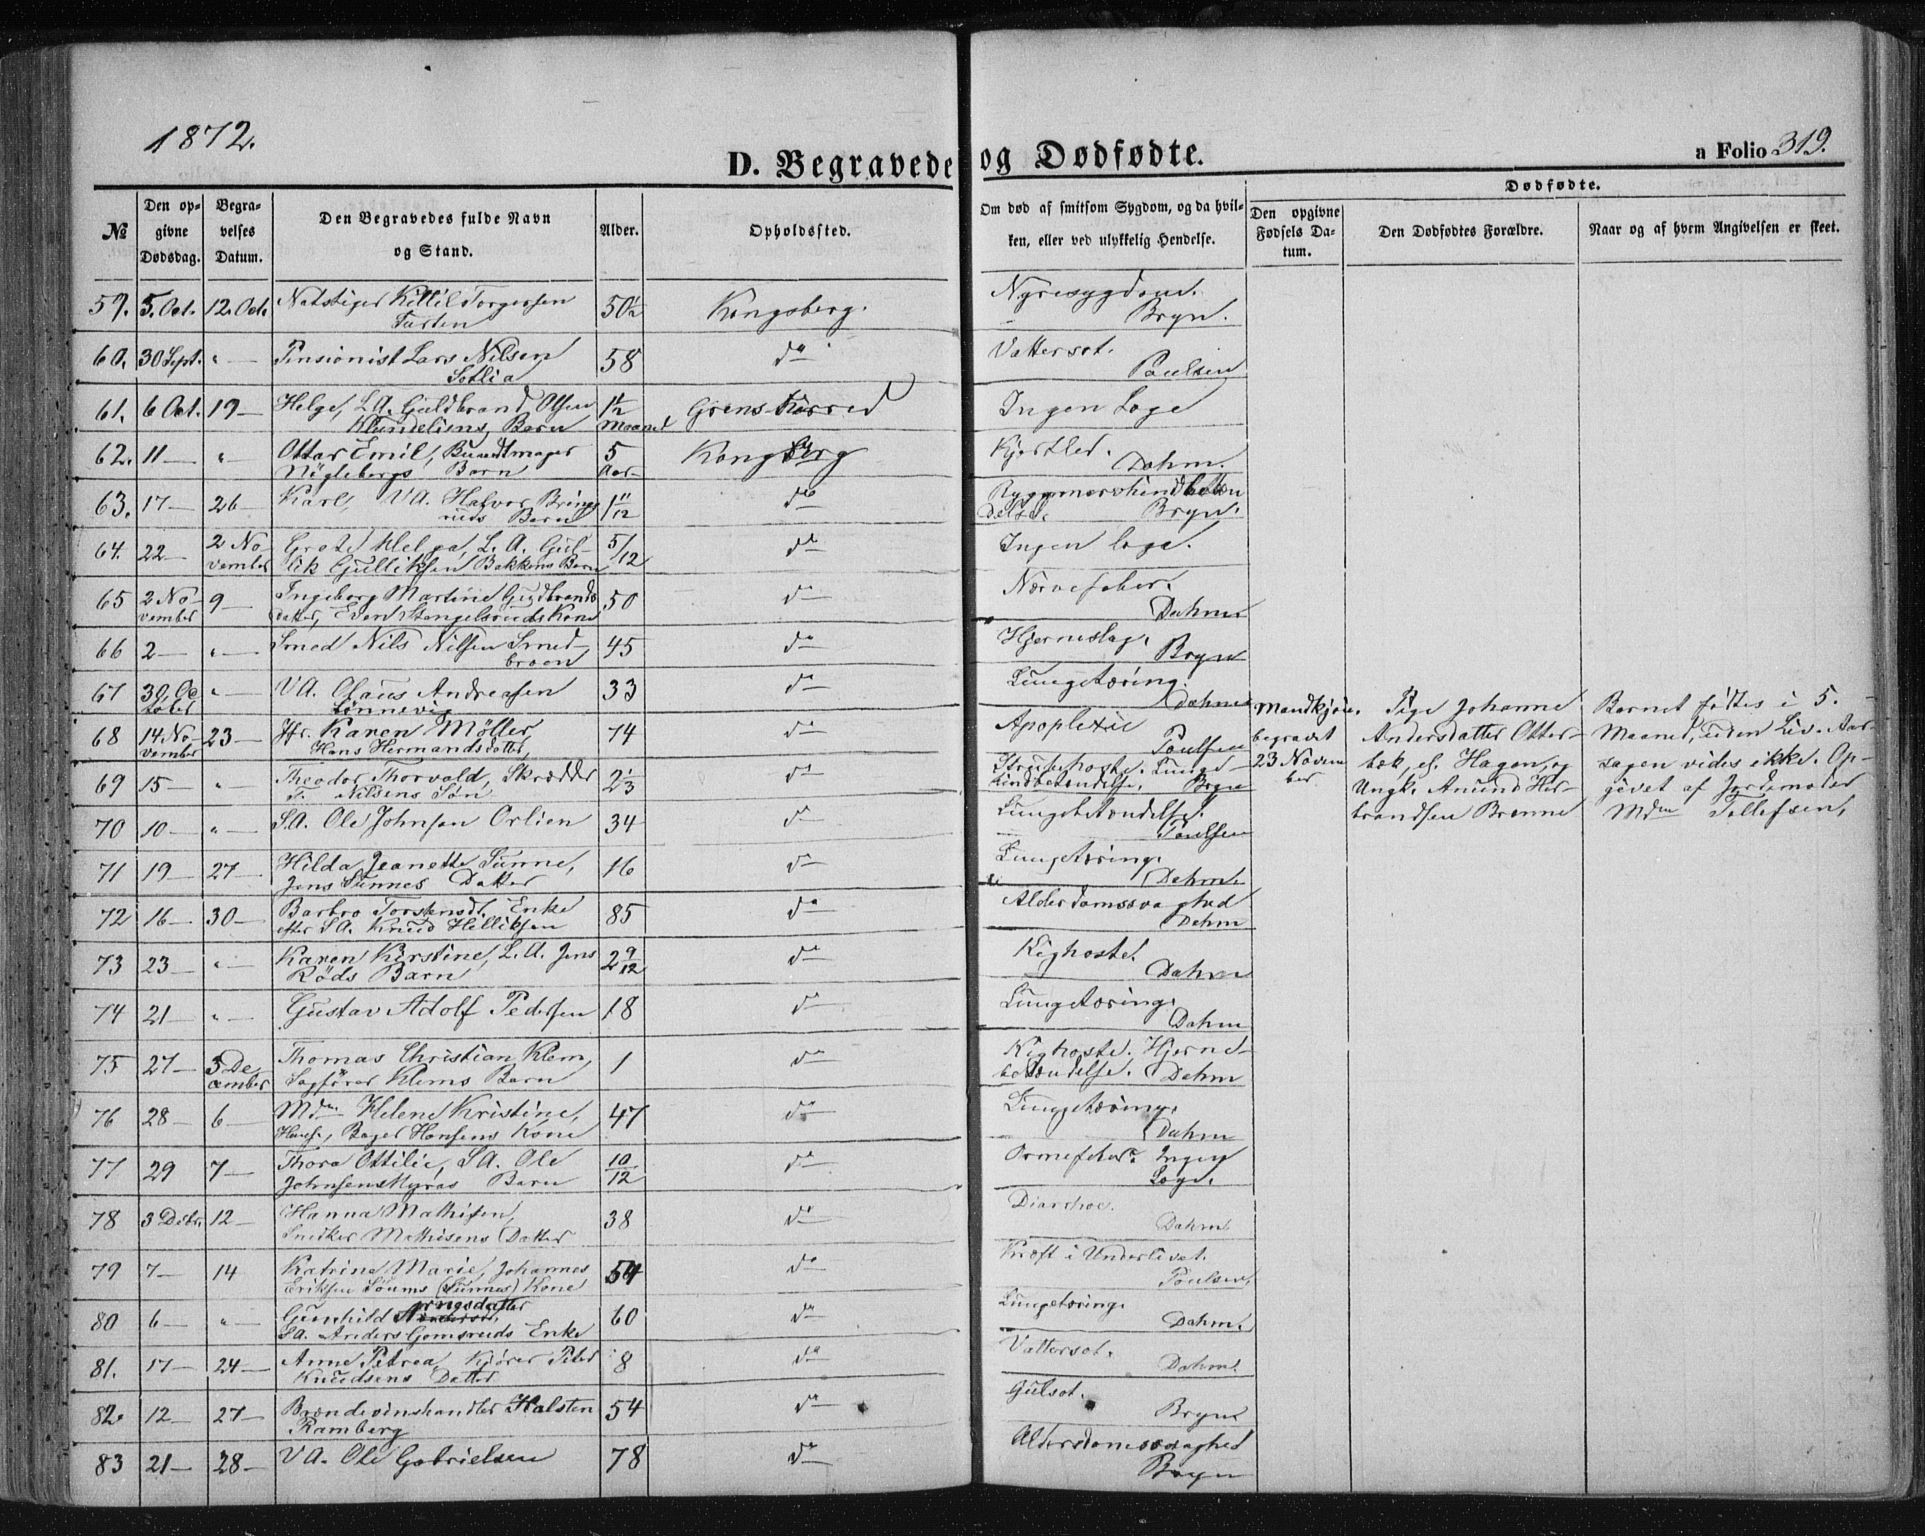 1872.
D. Begravede og Dødfødte.
a Folio 319.
No
Den op-
givne
Dødsdag.
Begra-
velses
Datum.
Den Begravedes fulde Navn
og Stand.
Alder.
Opholdssted.
Om død af smitsom Sygdom, og da hvil-
ken, eller ved ulykkelig Hendelse.
Dødfødte.
Den opgivne
Fødsels Da-
tum.
Den Dødfødtes Forældre.
Naar og af hvem Angivelsen er skeet.
59. 5. Oct. 12. Oct. Kittil Torgersen 50½ Kongsberg. Nyresygdom.
Bryn.
60. 30 Sept. " — Pensionist Lars Nilsen 58 do Vattersot.
Sotlia Poulsen
61. 6 Oct. 19 — Helge, L.A. Guldbrand Olsen 1½ Grens-Herred Ingen Læge
Barn Maaned
62. 11 — " — Ottar Emil, Buntmager 5 Kongsberg Kjertler.
Barn Aar Dahm.
63. 17 — 26 — Karl, V.A. Halvor Bring- 1 11/12 do
ruds Barn Bryn.
64. 22 — 2 No- Grete Helga, L.A. Gul- 5/12 do Ingen Læge.
vember lik Gulliksen Bakkens Barn
65 2 No- 9 — Ingeborg Martine Guldbrands 50 do Nervefeber.
vember datter, Even Stengelsruds Kone Dahm
66 2 — " — Smed Nils Nilsen Smed- 45 do Hjerneslag.
broen Bryn
67 30 Oc " — V.A. Olaus Andreasen 33 do Lungetæring.
tober Sønnevig Dahm
68 14 No- 23 — Jfr. Karen Møller 74 do Apoplexie
vember Hans Hermandsdatter, Poulsen
69 15 — " — Theodor Thorvald, Skrædder 2 1/3 do Strubehoste. Lunge-
T. Nilsens Søn Bryn
70 10 — " — S.A. Ole Johnsen Orlien 34 do Lungebetændelse.
Poulsen
Mandkjøn.
begravet
23 Novem
ber
Pige Johanne
Andersdatter Otter-
bæk, el. Hagen, og
Ungk. Amund Hel-
brandsen Brenne
Barnet fødtes i 5.
Maaned, uden Liv. Aar-
sagen vides ikke. Op-
givet af Jordemoder
Mdm Tollefsen,
71 19 — 27 — Hilda Jeanette Sunne, 16 do Lungetæring.
Jens Sunnes Datter Dahm.
72 16 — 30 — Barbro Torstensdt. Enke 85 do Alderdomssvaghed
efter S.A. Knud Helliksen Dahm
73 23 — " — Karen Kirstine, L.A. Jens 2 9/12 do Kighoste.
Røds Barn Dahm
74 21 — " — Gustav Adolf Pedersen 18 do Lungetæring.
Dahm
75 27 — 5 De Thomas Christian Klem, 1 do Kighoste. Hjerne-
cember Sagfører Klems Barn betændelse. Dahm
76 28 — 6 — Mdm Helene Kristine, 47 do Lungetæring.
Bager Hansens Kone Dahm
77 29 7 — Thora Ottilie, S.A. Ole 10/12 do Ormefeber. Ingen
Johnsens Myras Barn Læge.
78 3 Debr. 12 — Hanna Mathisen, 38 do Diarrhoe.
Snedker Mathisens Datter Dahm
79 7 — 14 Katrine Marie, Johannes 54 do Kræft i Underlivet.
Eriksen Sonms (Sunnes) Kone Poulsen,
80 6 — " — Gunhild Arnesdatter 60 do Lungetæring.
S.A. Anders Gomsruds Enke Dahm.
81. 17 — 24 — Anne Petrea, Kjører Peter 8 do Vattersot.
Knudsens Datter Dahm.
82. 12 — 27 — Brændevinshandler Halsten 54 do Gulsot.
Ramberg Bryn
83 21 — 28 — V.A. Ole Gabrielsen 78 do Alderdomssvaghed
Bryn